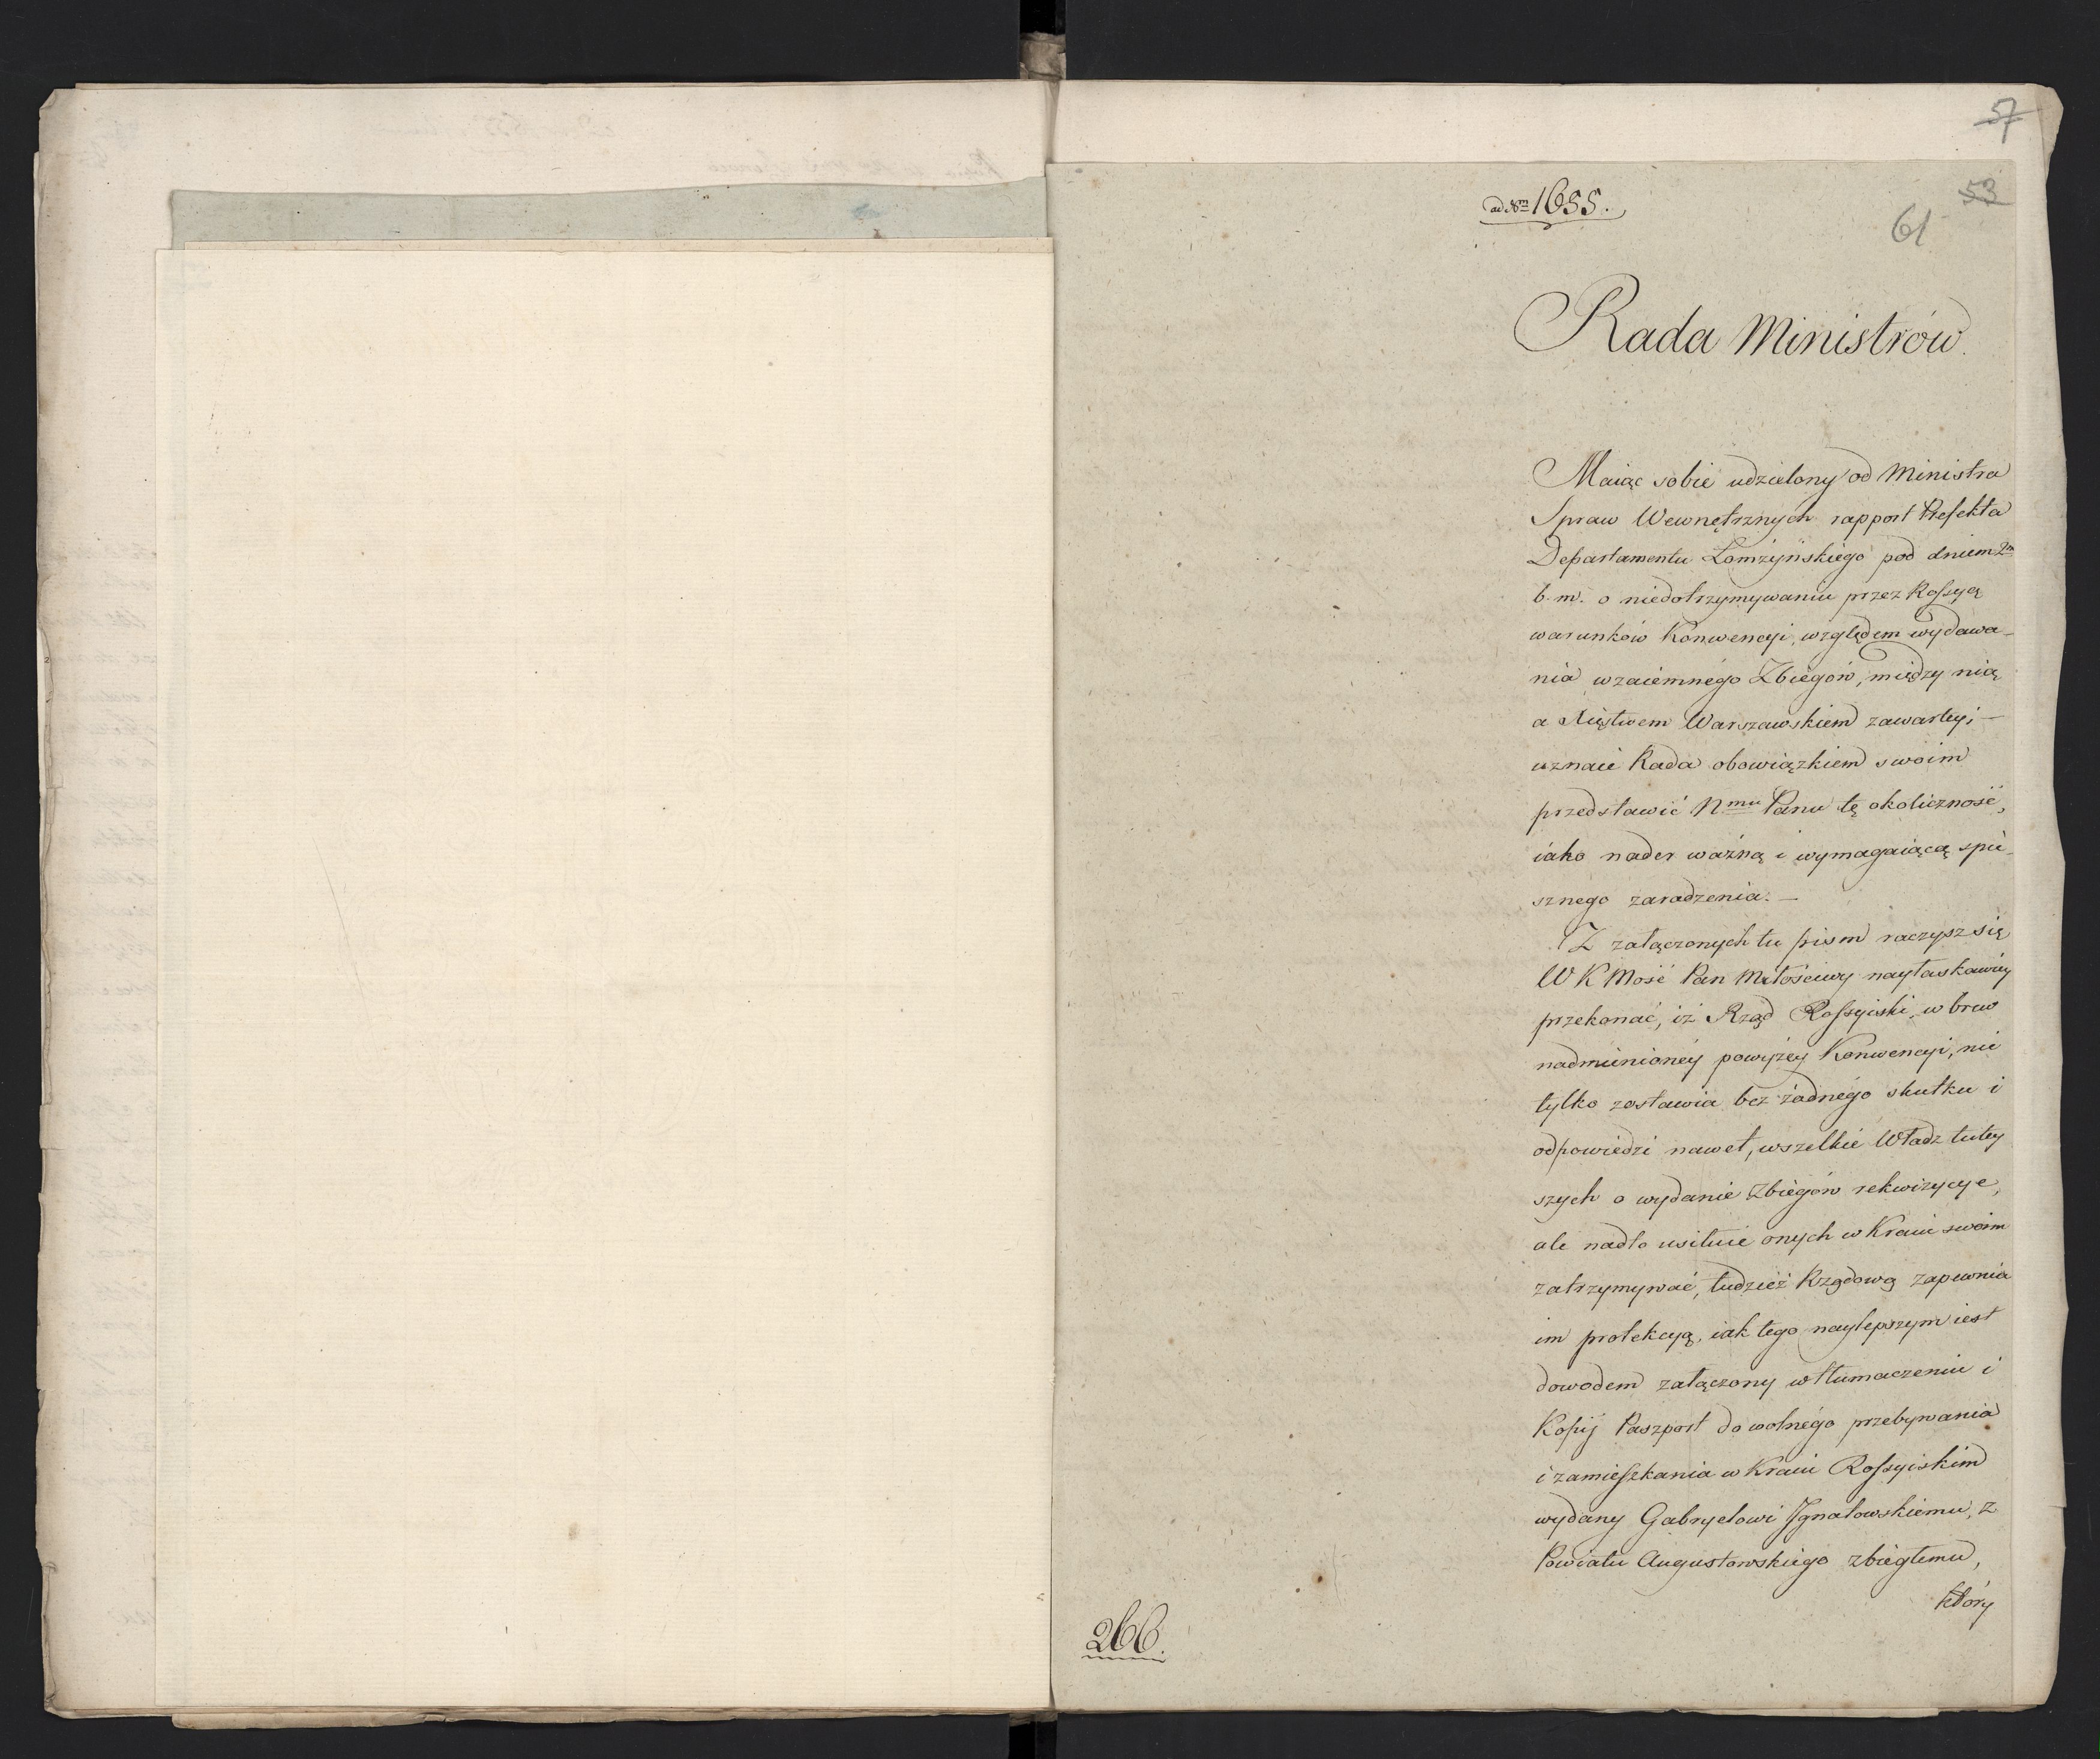 57
53
61
ad Nm 1655.
Rada Ministrów.
Maiąc sobie udzielony od Ministra
Spraw Wewnętrznych rapport Prefekta
Departamentu Łomżyńskiego pod dniem 2m
b. m. o niedotrzymywaniu przez Rossyą
warunków Konwencyi, względem wydawa-
nia wzaiemnégo Zbiegów, między nią
a Xięstwem Warszawskiem zawartey; —
uznaie Rada obowiązkiem swoim
przedstawić Nmu Panu tę okoliczność,
iako nader ważną i wymagaiącą spie-
sznego zaradzenia. —
Z załączonych tu pism raczysz się
W K Mość Pan Miłościwy nayłaskawiey
przekonać, iż Rząd Rossyiski, w brew
nadmienioney powyżey Konwencyi, nie
tylko zostawia bez żadnégo skutku i
odpowiedzi nawet, wszelkie Władz tutey
szych o wydanie Zbiegów rekwizycye,
ale nadto usiłuie onych w Kraiu swoim
zatrzymywać, tudzież Rządową zapewnia
im protekcyą, iak tego naylepszym iest
dowodem załączony w tłumaczeniu i
Kopij Paszport do wolnégo przebywania
i zamieszkania w Kraiu Rossyiskim
wydany Gabryelowi Ignatowskiemu, z
Powiatu Augustowskiego zbiegłemu,
który
266.